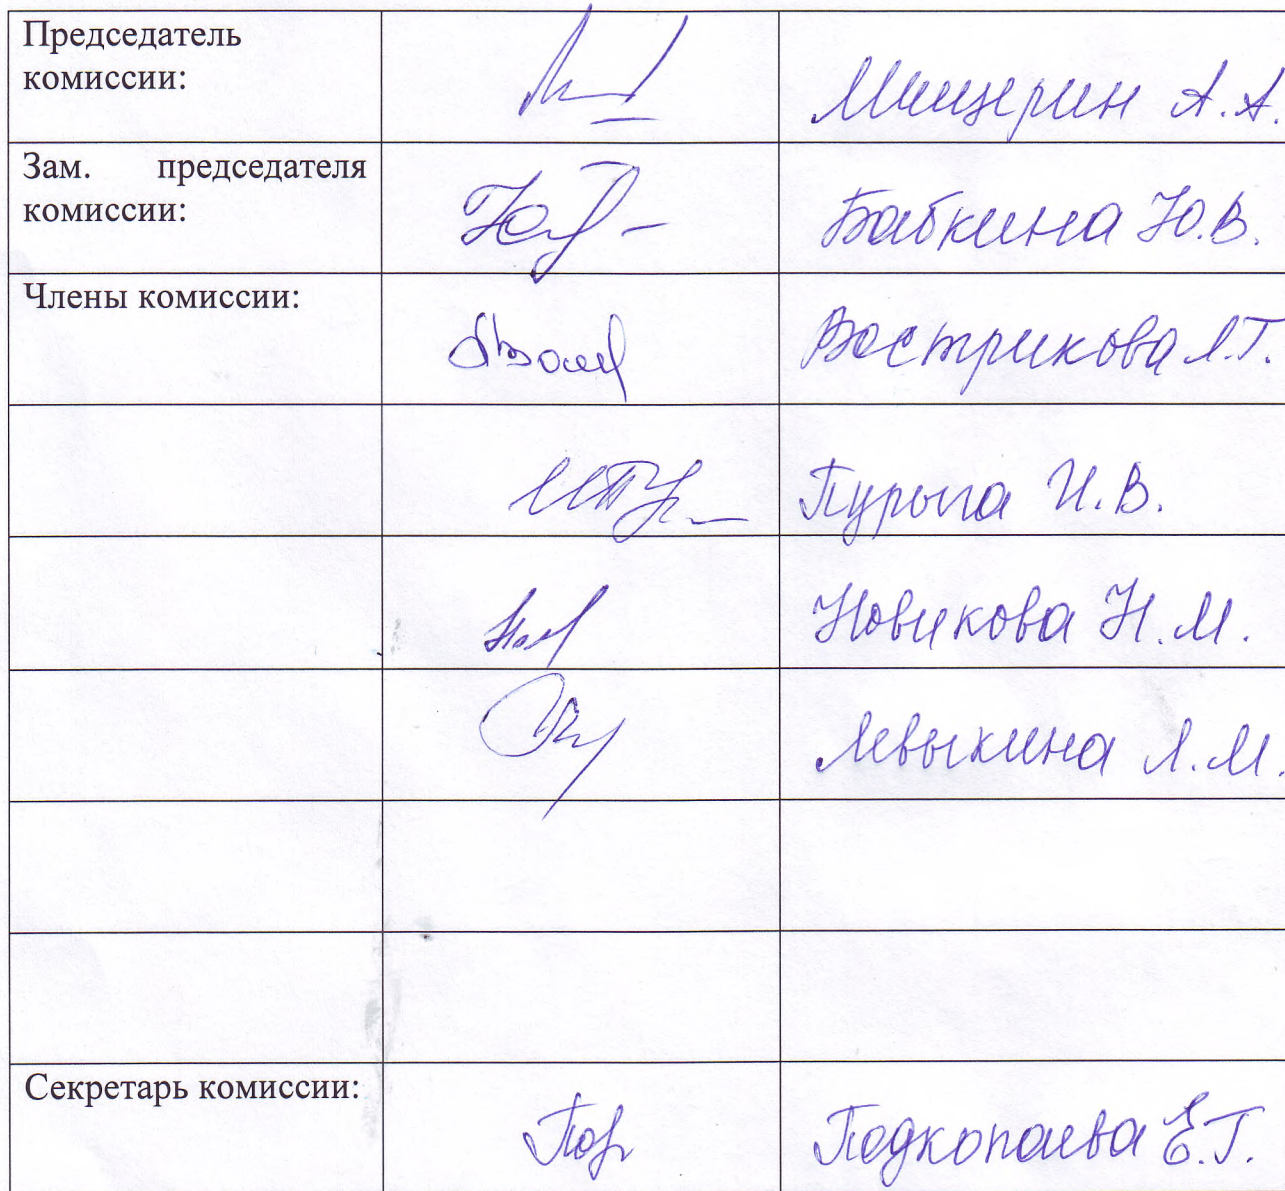 Председатель
комиссии:
Мищерин А.А.
Зам. председателя
комиссии:
Бабкина Ю.В.
Члены комиссии:
Вострикова Л.Г.
Пурыга И.В.
Новикова Н.М.
Левыкина Л.М.
Секретарь комиссии:
Подкопаева Е.Г.